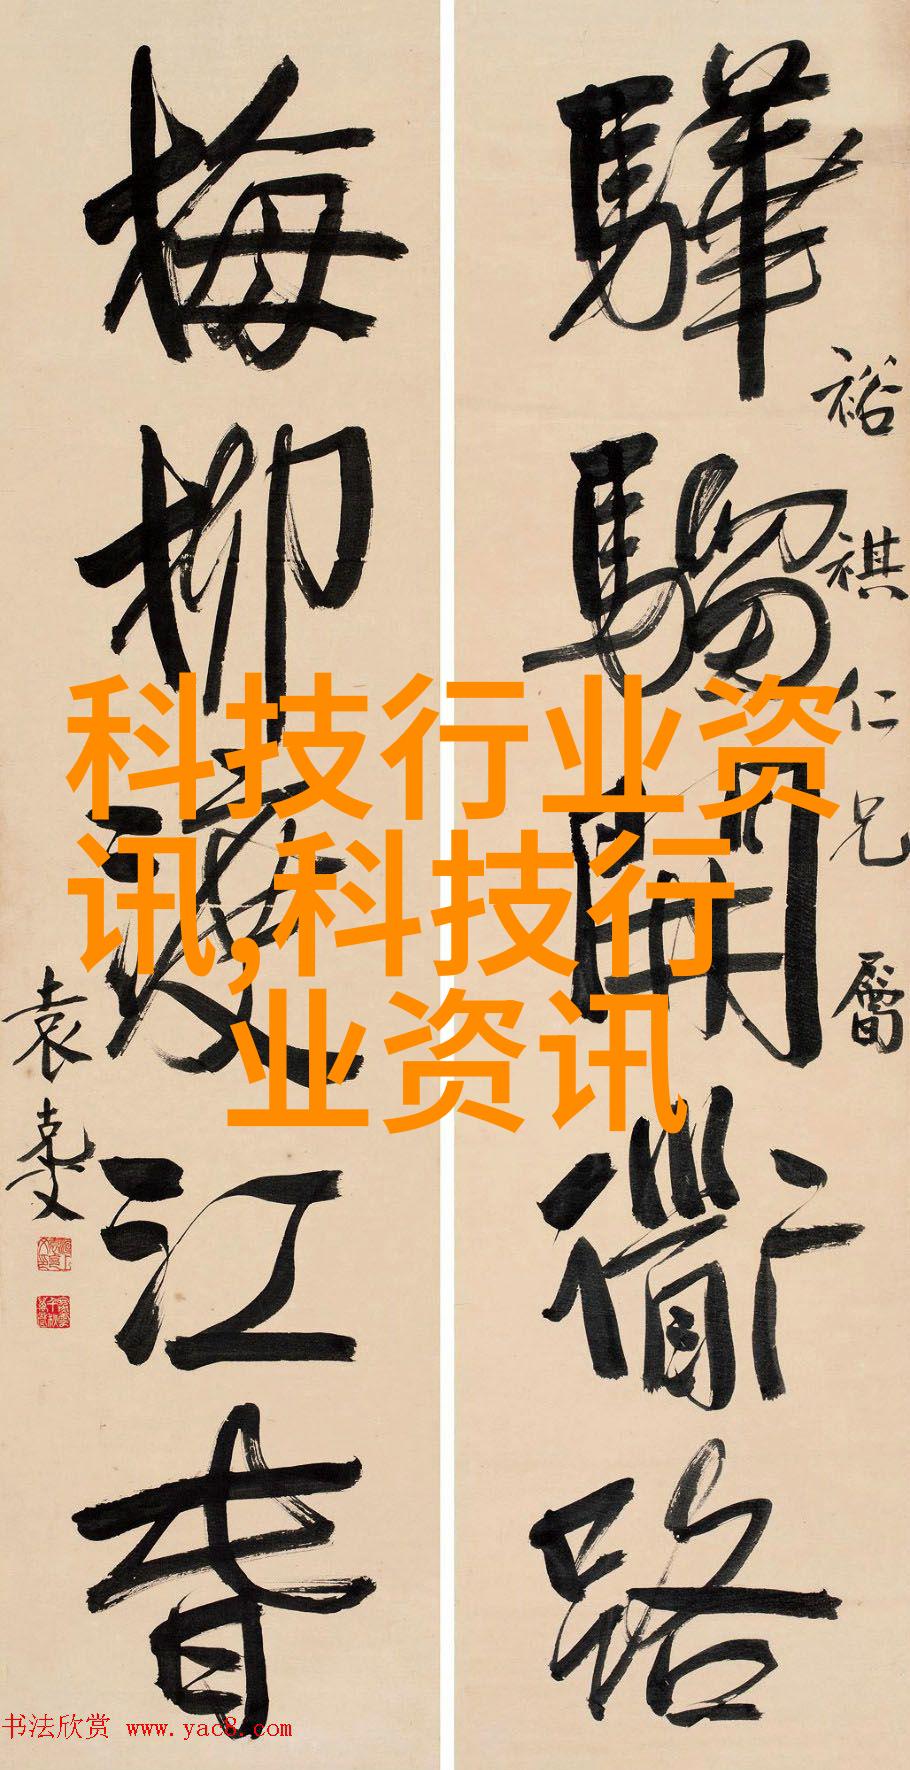 驊騮開衜路
裕祺仁兄屬
梅柳渡江春
袁克文
科技行业资
讯,科技行
业资讯
书法欣赏 www.yac8.com